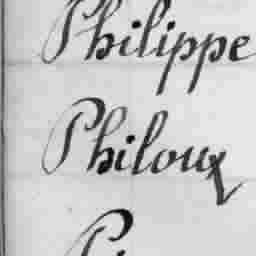 Philippe
Philoux